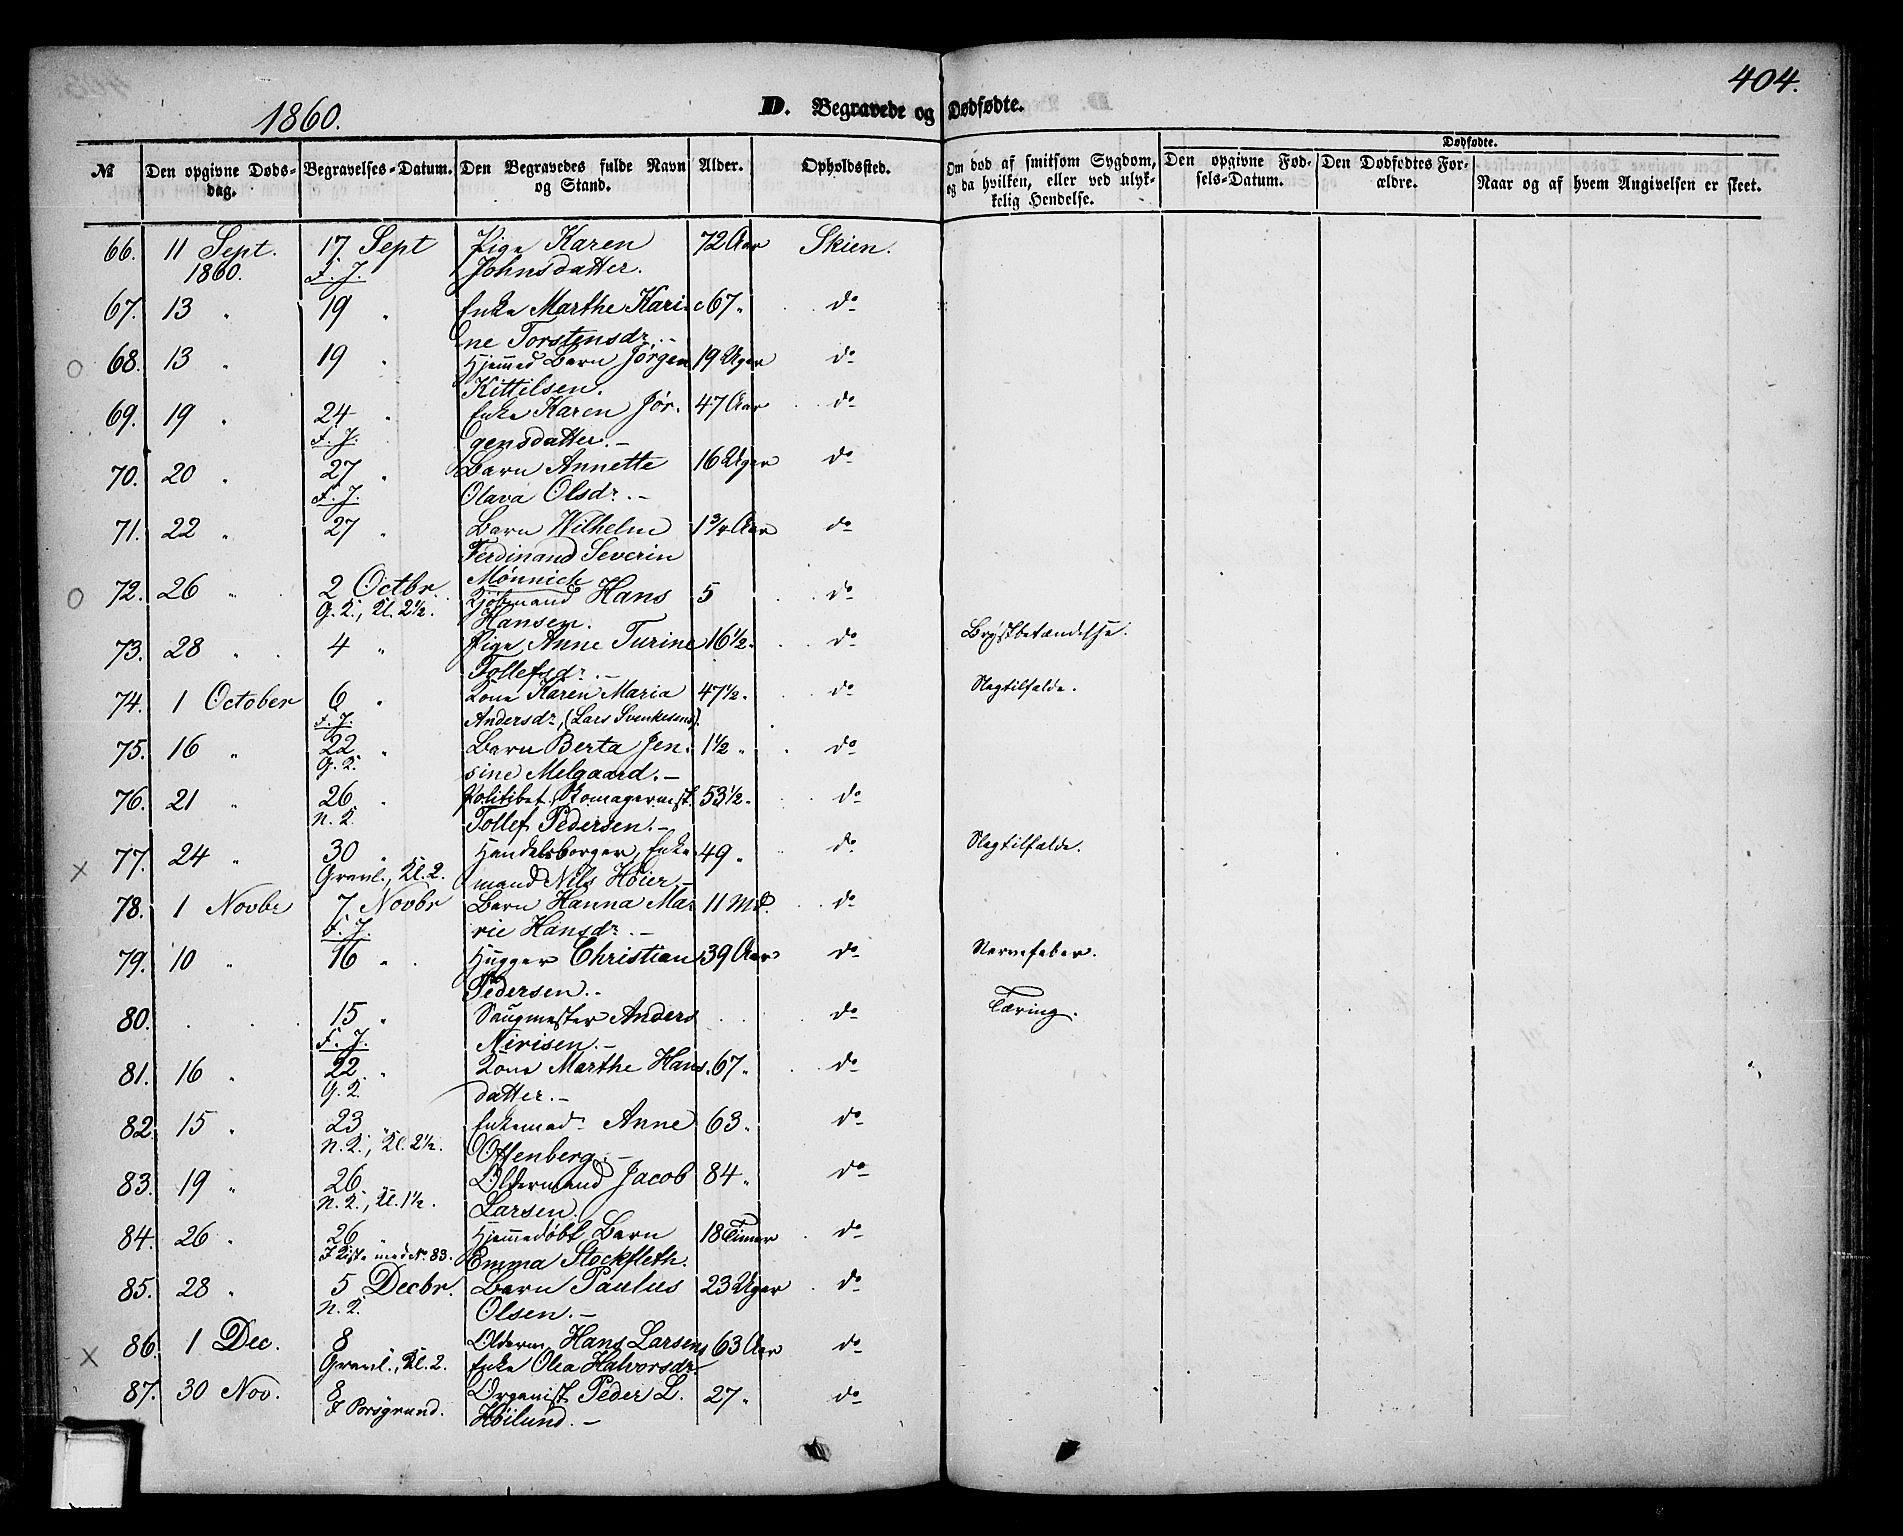 404.
1860.
D. Begravede og Dødfødte.
№
Den opgivne Døds-
dag.
Begravelses-Datum.
Den Begravedes fulde Navn
og Stand.
Alder.
Opholdssted.
Om død af smitsom Sygdom,
og da hvilken, eller ved ulyk-
kelig Hendelse.
Dødfødte.
Den opgivne Fød-
sels-Datum.
Den Dødfødtes For-
ældre.
Naar og af hvem Angivelsen er skeet.
66. 11 Sept. 17 Sept Pige Karen 72 Aar Skien.
1860. F. J. Johnsdatter.
67. 13 " 19 " Enke Marthe Kari- 67 " do
ne Torstensdr. -
68. 13 " 19 " Hjemmed Barn Jörgen 19 Uger do
Kittilsen.
69. 19 " 24 " Enke Karen Jör- 47 Aar do
F. J. gensdatter. -
70. 20 " 27 " Barn Annette 16 Uger do
F. J. Olava Olsdr. -
71. 22 " 27 " Barn Wilhelm 1 3/4 Aar do
Ferdinand Severin
Mönnich
72. 26 " 2 Octbr. Kjöbmand Hans 5 do
G. K., Kl. 2½. Hansen.
73. 28 " 4 " Pige Anne Turine 16½ " do Brÿstbetændelse.
Tollefsdr. -
74. 1 October 6 " Kone Karen Maria 47½ " do Slagtilfælde.
F. J. Andersdr, (Lars Svenkesens).
75. 16 " 22 " Barn Berta Jen- 1½ " do
G. K. sine Melgaard. -
76. 21 " 26 " Politibet. Skomagermest. 53½ " do
N. K. Tollef Pedersen. -
77. 24 " 30 " Handelsborger, Enke- 49 " do Slagtilfælde.
Gravl., Kl. 2. mand Nils Höier -
78. 1 Novbr 7 Novbr Barn Hanna Ma- 11 Md. do
F. J. rie Hansdr. -
79. 10 " 16 " Hugger Christian 39 Aar do Nervefeber.
Pedersen. -
80. 15 " Saugmester Anders do Tæring.
F. J. Nirisen. -
81. 16 " 22 " Kone Marthe Hans- 67 " do
G. K. datter. -
82. 15 " 23 " Enkemad. Anne 63 " do
N. K., Kl. 2½. Offenberg. -
83. 19 " 26 Oldermand Jacob 84 " do
N. K., Kl. 1½. Larsen.
84. 26 " 26 " Hjemmedöbt Barn 18 Timer do
I Kiste med No. 83. Emma Stockfleth.
85. 28 " 5 Decbr. Barn Paulus 23 Uger do
N. K. Olsen. -
86. 1 Dec. 8 Olderm. Hans Larsens 63 Aar do
Gravl., Kl. 2. Enke Olea Halvorsdr
87. 30 Nov. 8 Organist Peder L. 27 " do
I Porsgrund. Höilund. -